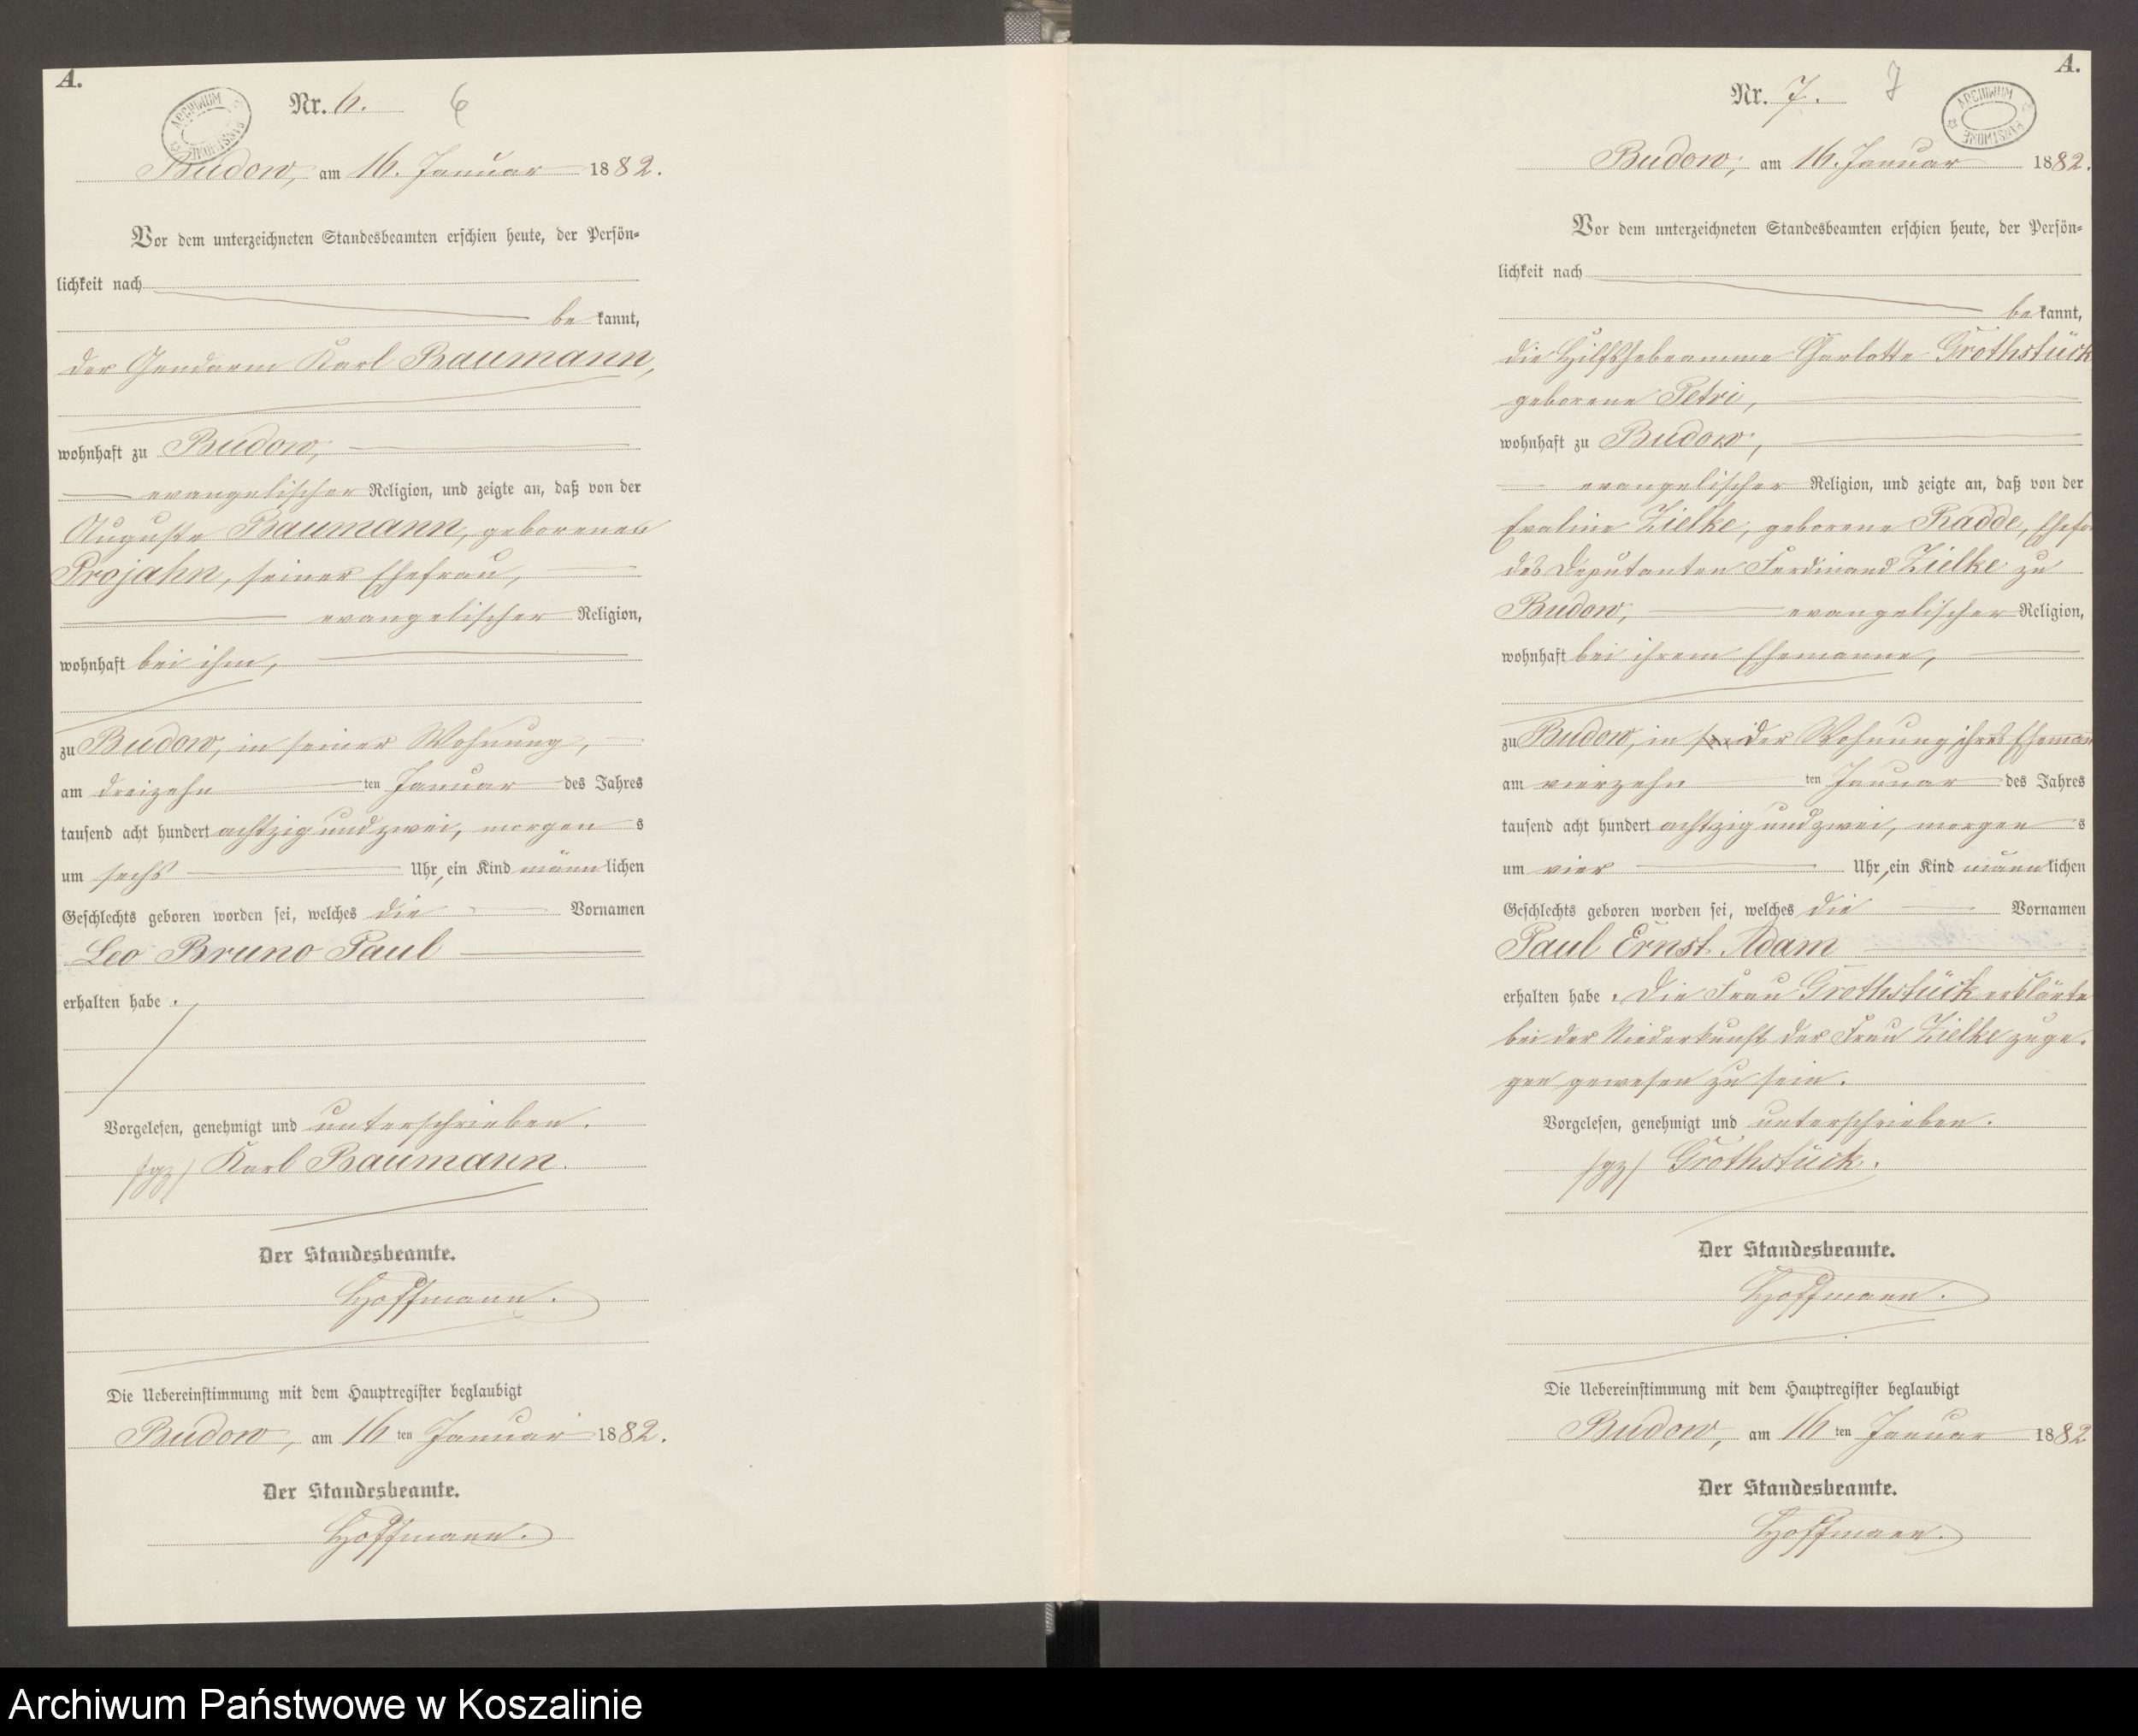 A.
ARCHIWUM PAŃSTWOWE
Nr. 6. 6
Budow, am 16. Januar 1882.
Vor dem unterzeichneten Standesbeamten erschien heute, der Persön=
lichkeit nach
be kannt,
der Gendarm Karl Baumann,
wohnhaft zu Budow,
evangelischer Religion, und zeigte an, daß von der
Auguste Baumann, geborenen
Projahn, seiner Ehefrau,
evangelischer Religion,
wohnhaft bei ihm,
zu Budow, in seiner Wohnung,
am dreizehn ten Januar des Jahres
tausend acht hundert achtzig und zwei, morgen s
um sechs Uhr, ein Kind männ lichen
Geschlechts geboren worden sei, welches die Vornamen
Leo Bruno Paul
erhalten habe.
Vorgelesen, genehmigt und unterschrieben.
/gz/ Karl Baumann.
Der Standesbeamte.
Hoffmann.
Die Uebereinstimmung mit dem Hauptregister beglaubigt
Budow, am 16 ten Januar 1882.
Der Standesbeamte.
Hoffmann.
A.
Nr. 7. 7
ARCHIWUM PAŃSTWOWE
Budow, am 16. Januar 1882.
Vor dem unterzeichneten Standesbeamten erschien heute, der Persön=
lichkeit nach
be kannt,
die Hilfshebeamme Charlotte Grothstück
geborene Petri,
wohnhaft zu Budow,
evangelischer Religion, und zeigte an, daß von der
Evaline Zielke, geborene Radde, Ehefr
des Deputanten Ferdinand Zielke zu
Budow, evangelischer Religion,
wohnhaft bei ihrem Ehemanne,
zu Budow, in der Wohnung ihres Eheman
am vierzehn ten Januar des Jahres
tausend acht hundert achtzig und zwei, morgen s
um vier Uhr, ein Kind männ lichen
Geschlechts geboren worden sei, welches die Vornamen
Paul Ernst Adam
erhalten habe. Die Frau Grothstück erklärte
bei der Niederkunft der Frau Zielke zuge-
gen gewesen zu sein.
Vorgelesen, genehmigt und unterschrieben.
/gz/ Grothstück.
Der Standesbeamte.
Hoffmann.
Die Uebereinstimmung mit dem Hauptregister beglaubigt
Budow, am 16 ten Januar 1882
Der Standesbeamte.
Hoffmann.
Archiwum Państwowe w Koszalinie